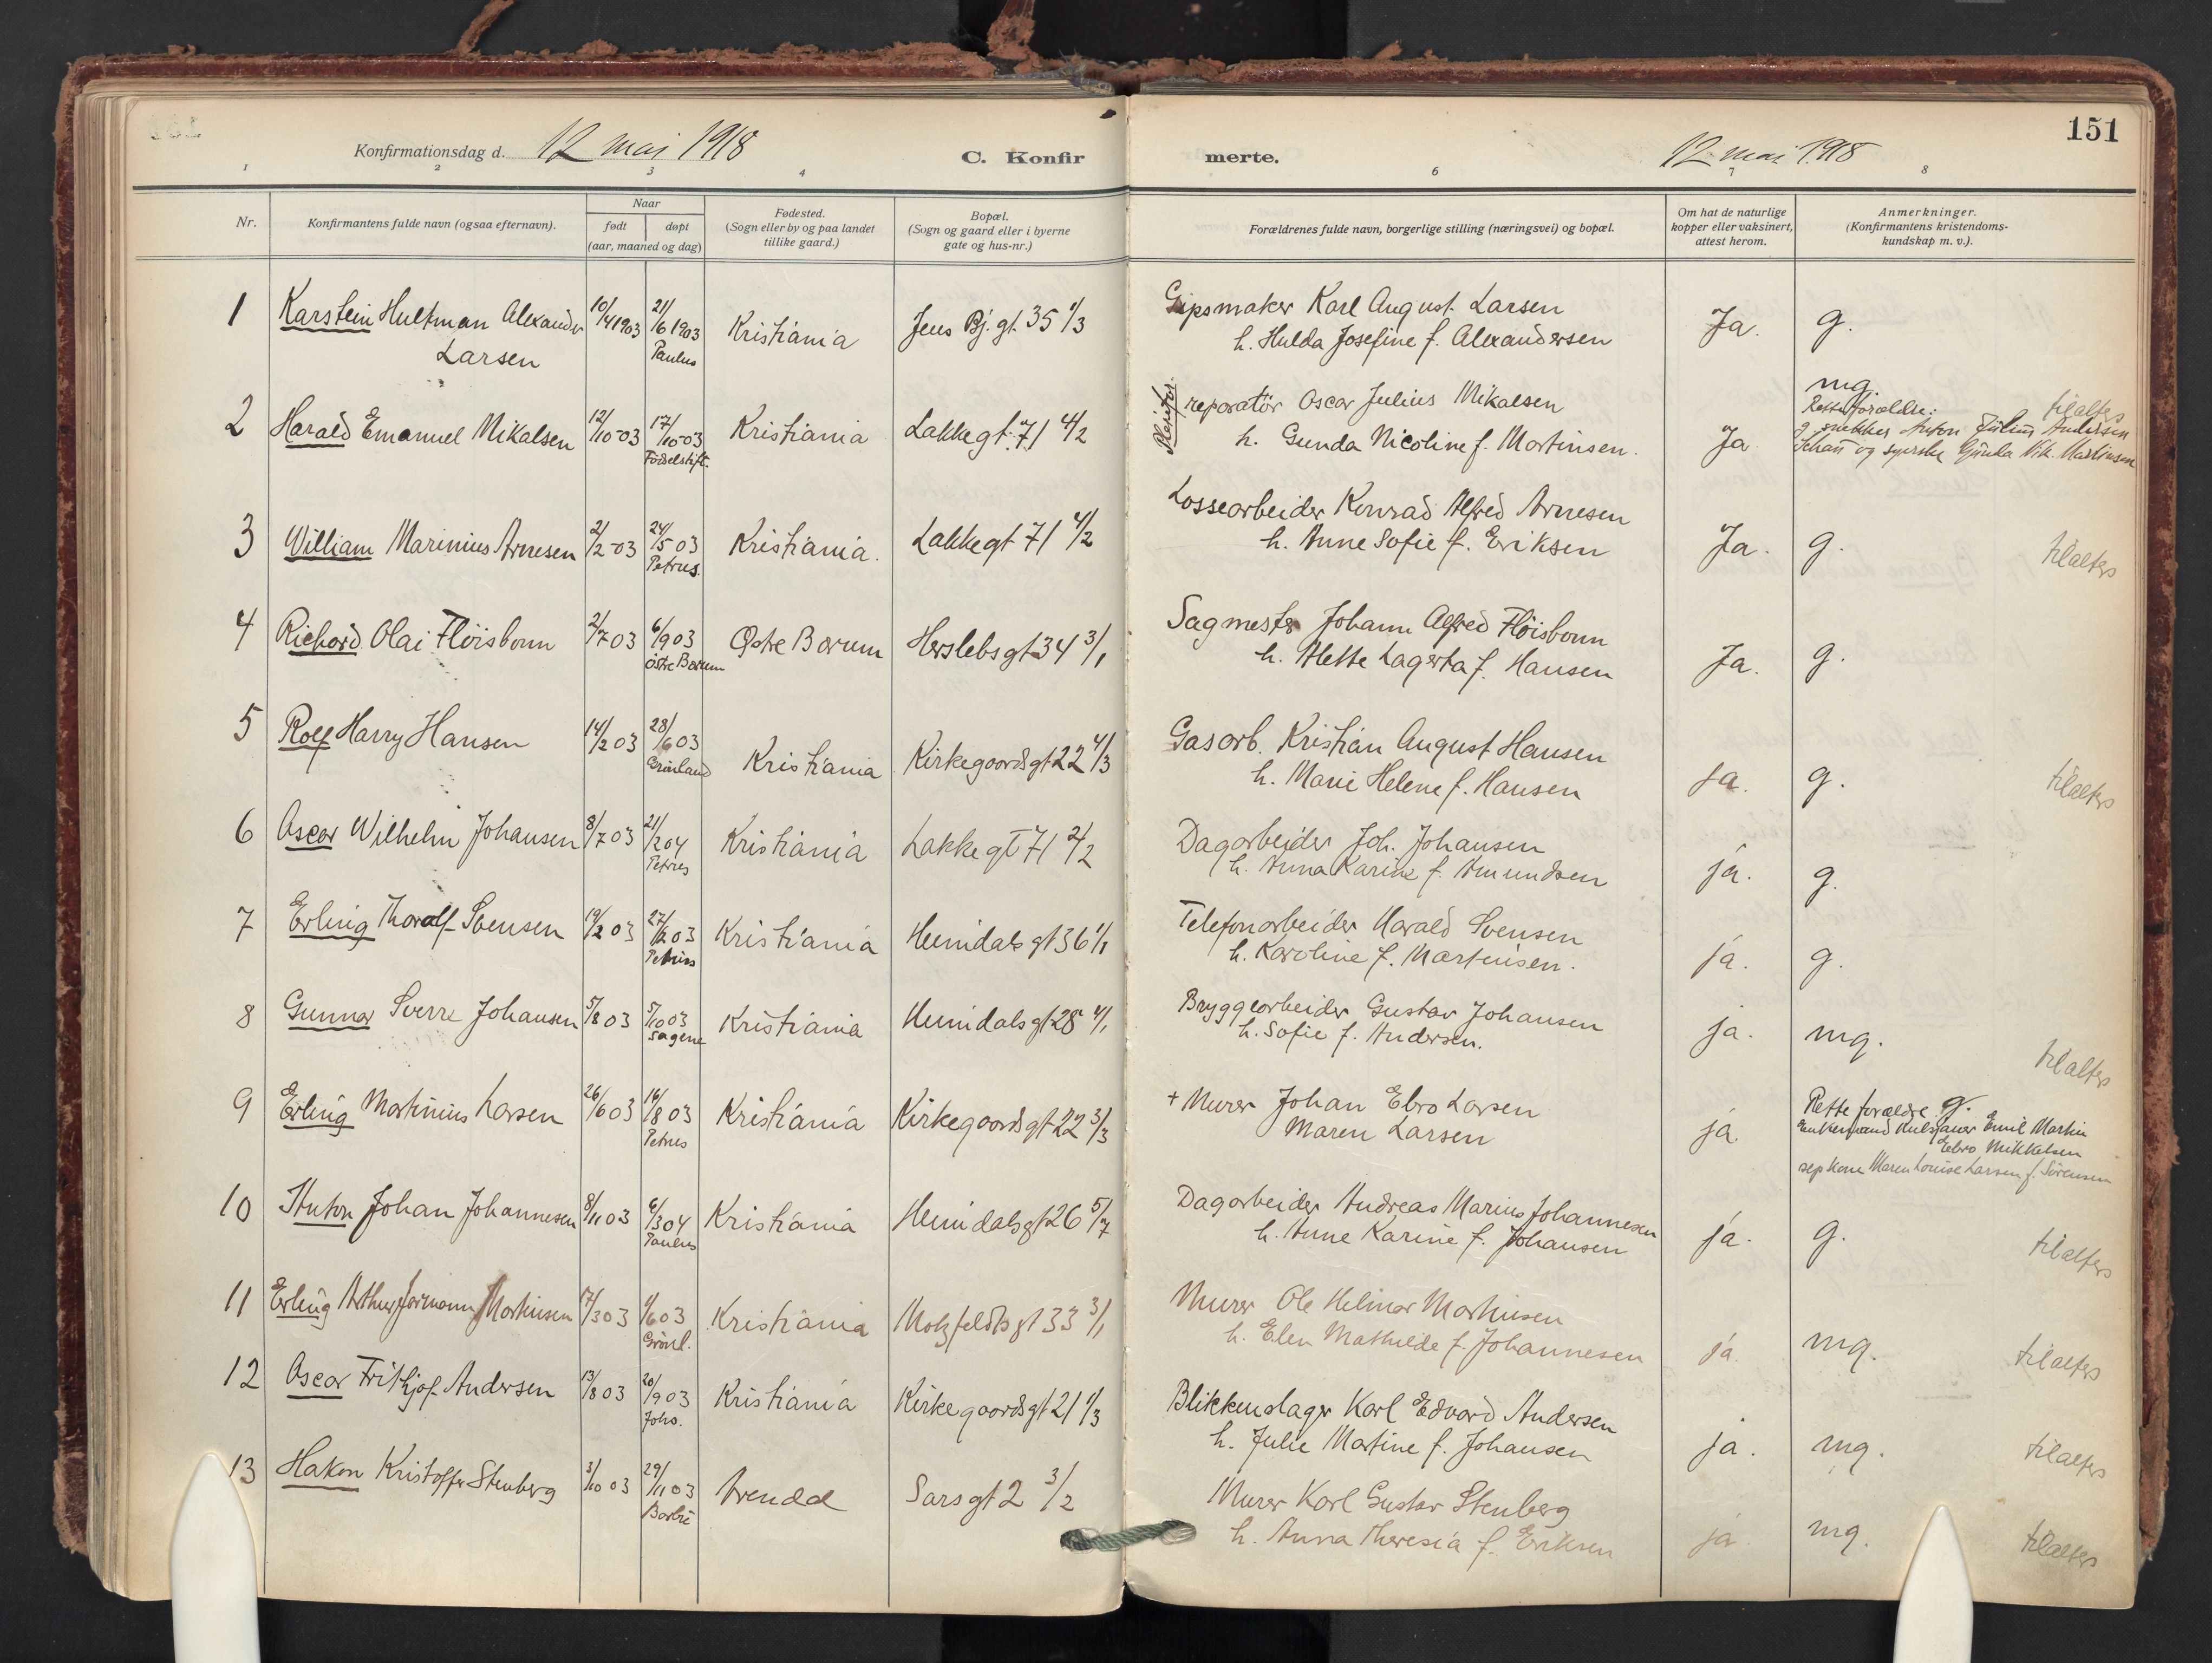 151
Konfirmationsdag d. 12 mai 1918
C. Konfir
merte.
12 mai 1918
1 2 3 4 6 7 8
Nr.
Konfirmantens fulde navn (ogsaa efternavn).
Naar
født
døpt
(aar, maaned og dag)
Fødested.
(Sogn eller by og paa landet
tillike gaard.)
Bopæl.
(Sogn og gaard eller i byerne
gate og hus-nr.)
Forældrenes fulde navn, borgerlige stilling (næringsvei) og bopæl.
Om hat de naturlige
kopper eller vaksinert,
attest herom.
Anmerkninger.
(Konfirmantens kristendoms-
kundskap m. v.).
1 Karstein Hultman Alexander 10/4 1903 21/6 1903 Kristiania Jens Bj. gt. 35 1/3 Gipsmaker Karl August Larsen Ja. g.
Larsen Paulus h. Hulda Josefine f. Alexandersen
2 Harald Emanuel Mikalsen 12/10-03 17/10-03 Kristiania Lakkegt. 71 4/2 reparatör Oscar Julius Mikalsen Ja mg. tilalters
Födselstift. h. Gunda Nicoline f. Martinsen.
Rette forældre:
snekker Anton Julius Andersen
og syerske Gunda Nik. Martinsen
3 William Marinius Arnesen 2/2-03 24/5 03 Kristiania. Lakkegt 71 4/2 Lossearbeider Konrad Alfred Arnesen Ja. g. tilalters
Petrus. h. Anne Sofie f. Eriksen
4 Richard Olai Flöisbonn 2/7 03 6/9 03 Østre Bærum Herslebsgt 34 3/1 Sagmester Johann Alfred Flöisbonn Ja. g.
Östre Bærum h. Alette Lagerta f. Hansen
5 Rolf Harry Hansen 14/2 03 28/6 03 Kristiania Kirkegaardsgt 22 4/3 Gasarb. Kristian August Hansen ja. g. tilalters
Grönland h. Marie Helene f. Hansen
6 Oscar Wilhelm Johansen 8/7 03 21/2 04 Kristiania Lakkegt 71 2/2 Dagarbeider Joh. Johansen ja. g.
Petrus h. Anna Karine f. Amundsen
7 Erling Thoralf Svensen 19/2 03 Kristiania Heimdalsgt 36 1/1 Telefonarbeider Harald Svensen ja. g.
Petrus h. Karoline f. Martinsen.
8 Gunnar Sverre Johansen 5/8 03 5/10 03 Kristiania Heimdalsgt 28 4/1 Bryggearbeider Gustav Johansen ja. mg. tilalters
Sagene h. Sofie f. Andersen.
9 Erling Martinius Larsen 26/6 03 16/8 03 Kristiania Kirkegaardsgt 22 3/3 + Murer Johan Ebro Larsen ja g.
Petrus Maren Larsen
Rette forældre
Enkemand Emil Martin
Ebro Mikkelsen
sep kone Maren Louise Larsen f. Sörensen
10 Anton Johan Johannesen 8/11 03 6/3 04 Kristiania Heimdalsgt 26 5/7 Dagarbeider Andreas Marius Johannesen ja. g. tilalters
Paulus h. Anne Karine f. Johansen
11 Erling Arthur Jörmann Martinsen 17/3 03 1/6 03 Kristiania Motzfeldtsgt 33 3/1 Murer Ole Helmer Martinsen ja. mg. tilalters
Grönl. h. Elen Mathilde f. Johannesen
12 Oscar Frithjof Andersen 13/8 03 20/9 03 Kristiania Kirkegaardsgt 21 1/3 Blikkenslager Karl Edvard Andersen ja. mg. tilalters
Johs. h. Julie Martine f. Johansen
13 Hakon Kristoffer Stenberg 3/10 03 29/11 03 Arendal Sarsgt 2 3/2 Murer Karl Gustav Stenberg ja mg. tilalters
h. Anna Theresia f. Eriksen